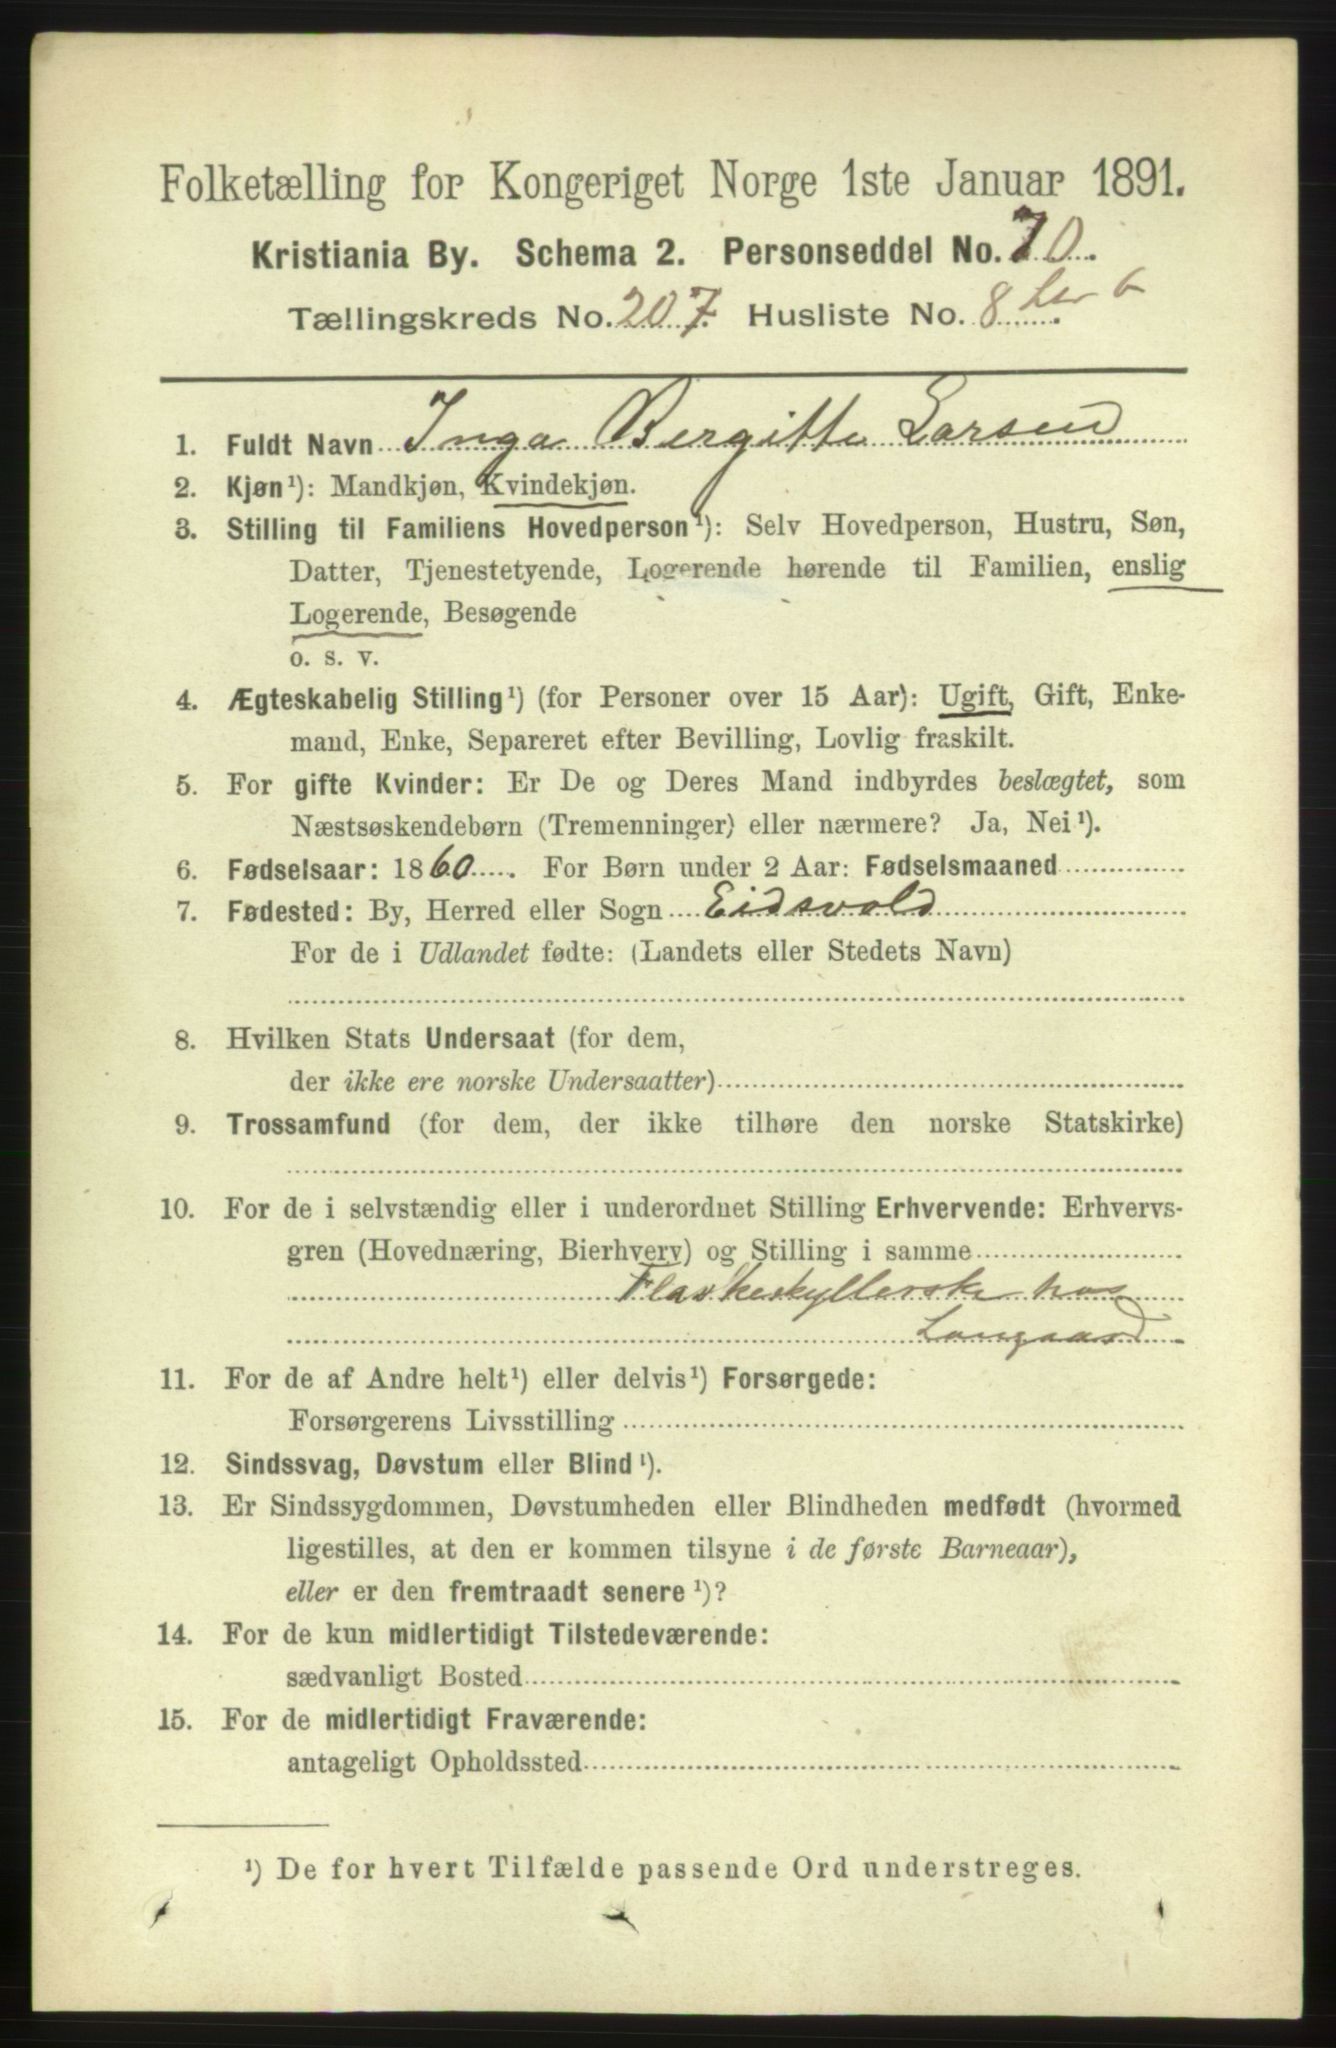 Folketælling for Kongeriget Norge 1ste Januar 1891.
Kristiania By. Schema 2. Personseddel No. 70.
Tællingskreds No. 207. Husliste No. 8
1. Fuldt Navn Inga Bergitte Larsen
2. Kjøn¹): Mandkjøn, Kvindekjøn.
3. Stilling til Familiens Hovedperson¹): Selv Hovedperson, Hustru, Søn,
Datter, Tjenestetyende, Logerende hørende til Familien, enslig
Logerende, Besøgende
o. s. v.
4. Ægteskabelig Stilling¹) (for Personer over 15 Aar): Ugift, Gift, Enke-
mand, Enke, Separeret efter Bevilling, Lovlig fraskilt.
5. For gifte Kvinder: Er De og Deres Mand indbyrdes beslægtet, som
Næstsøskendebørn (Tremenninger) eller nærmere? Ja, Nei¹).
6. Fødselsaar: 1860. For Børn under 2 Aar: Fødselsmaaned
7. Fødested: By, Herred eller Sogn Eidsvold
For de i Udlandet fødte: (Landets eller Stedets Navn)
8. Hvilken Stats Undersaat (for dem,
der ikke ere norske Undersaatter)
9. Trossamfund (for dem, der ikke tilhøre den norske Statskirke)
10. For de i selvstændig eller i underordnet Stilling Erhvervende: Erhvervs-
gren (Hovednæring, Bierhverv) og Stilling i samme
Flaskeskyllerske hos
Langaard
11. For de af Andre helt¹) eller delvis¹) Forsørgede:
Forsørgerens Livsstilling
12. Sindssvag, Døvstum eller Blind¹).
13. Er Sindssygdommen, Døvstumheden eller Blindheden medfødt (hvormed
ligestilles, at den er kommen tilsyne i de første Barneaar),
eller er den fremtraadt senere¹)?
14. For de kun midlertidigt Tilstedeværende:
sædvanligt Bosted
15. For de midlertidigt Fraværende:
antageligt Opholdssted
¹) De for hvert Tilfælde passende Ord understreges.